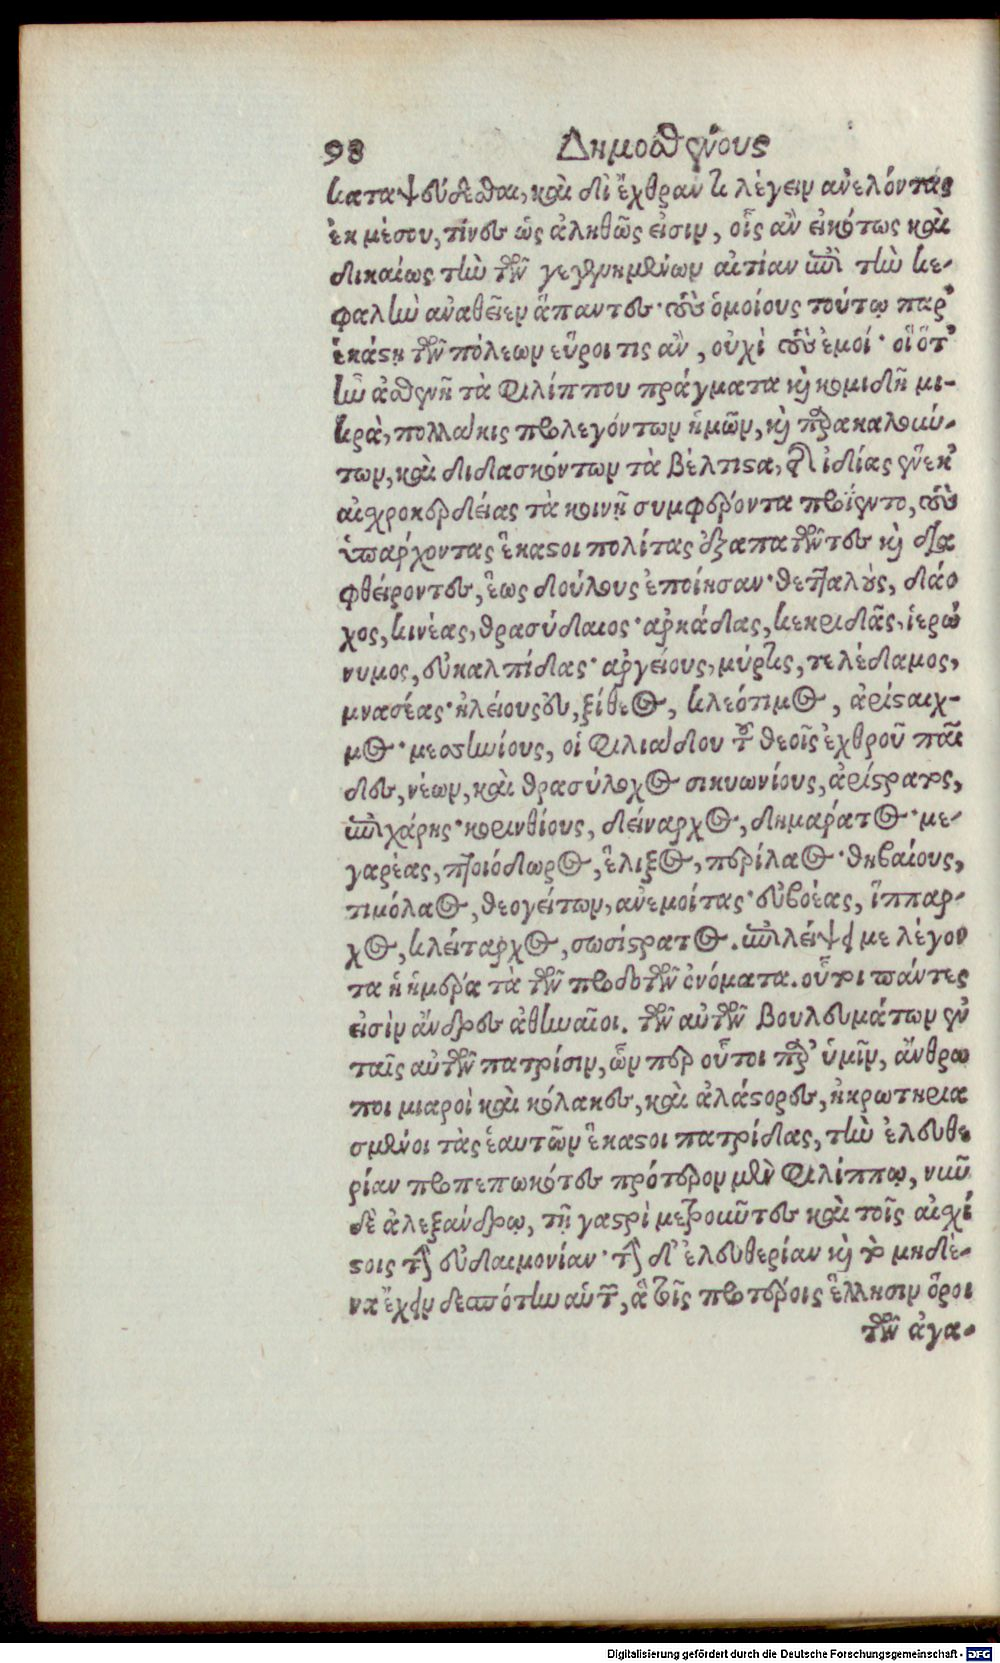 98 Δημοσθένους
καταψεύδεσθαι, καὶ δι' ἔχθραν τι λέγειν ἀνελόντας
ἐκ μέσου, τίνες ὡς ἀληθῶς εἰσιν, οἷς ἂν εἰκότως καὶ
δικαίως τὴν τῶν γεγενημένων αἰτίαν ἐπὶ τὴν κε-
φαλὴν ἀναθεῖεν ἅπαντες· τοὺς ὁμοίους τούτῳ παρ'
ἑκάστῃ τῶν πόλεων εὕροι τις ἂν, οὐχὶ τοὺς ἐμοί· οἳ ὅτ'
ἦν ἀσθενῆ τὰ Φιλίππου πράγματα καὶ κομιδῇ μι-
κρὰ, πολλάκις προλεγόντων ἡμῶν, καὶ παρακαλούν-
των, καὶ διδασκόντων τὰ βέλτιστα, τῆς ἰδίας ἕνεκ'
αἰσχροκερδείας τὰ κοινῇ συμφέροντα προΐεντο, τοὺς
ὑπάρχοντας ἕκαστοι πολίτας ἐξαπατῶντες καὶ δια
φθείροντες, ἕως δούλους ἐποίησαν· θετταλοὺς, δάο
χος, κινέας, θρασύδαιος· ἀρκάδας, κερκιδᾶς, ἱερώ
νυμος, εὐκαλπίδας· ἀργείους, μύρτις, τελέδαμος,
μνασέας· ἠλείους εὐ, ξίθεος, κλεότιμος, ἀρίσταιχ-
μος· μεσσηνίους, οἱ Φιλιάδου τοῦ θεοῖς ἐχθροῦ παῖ
δες, νέων, καὶ θρασύλοχος σικυωνίους, ἀρίστρατος,
ἐπιχάρης· κορινθίους, δείναρχος, δημάρατος· με-
γαρέας, πτοιόδωρος, ἕλιξος, περίλαος· θηβαίους,
τιμόλαος, θεογείτων, ἀνεμοίτας· εὐβοέας, ἵππαρ-
χος, κλείταρχος, σωσίστρατος. ἐπιλείψει με λέγον
τα ἡ ἡμέρα τὰ τῶν προδοτῶν ὀνόματα. οὗτοι πάντες
εἰσὶν ἄνδρες ἀθηναῖοι. τῶν αὐτῶν βουλευμάτων ἐν
ταῖς αὐτῶν πατρίσιν, ὧν περ οὗτοι παρ' ὑμῖν, ἄνθρω
ποι μιαροὶ καὶ κόλακες, καὶ ἀλάστορες, ἠκρωτηρια
σμένοι τὰς ἑαυτῶν ἕκαστοι πατρίδας, τὴν ἐλευθε
ρίαν προπεπωκότες πρότερον μὲν Φιλίππῳ, νῦν
δὲ ἀλεξάνδρῳ, τῇ γαστρὶ μετροῦντες καὶ τοῖς αἰσχί
στοις τὴν εὐδαιμονίαν· τὴν δ' ἐλευθερίαν καὶ τὸ μηδέ-
να ἔχειν δεσπότην αὑτῶν, ἃ τοῖς προτέροις ἕλλησιν ὅροι
τῶν ἀγα-
Digitalisierung gefördert durch die Deutsche Forschungsgemeinschaft - DFG